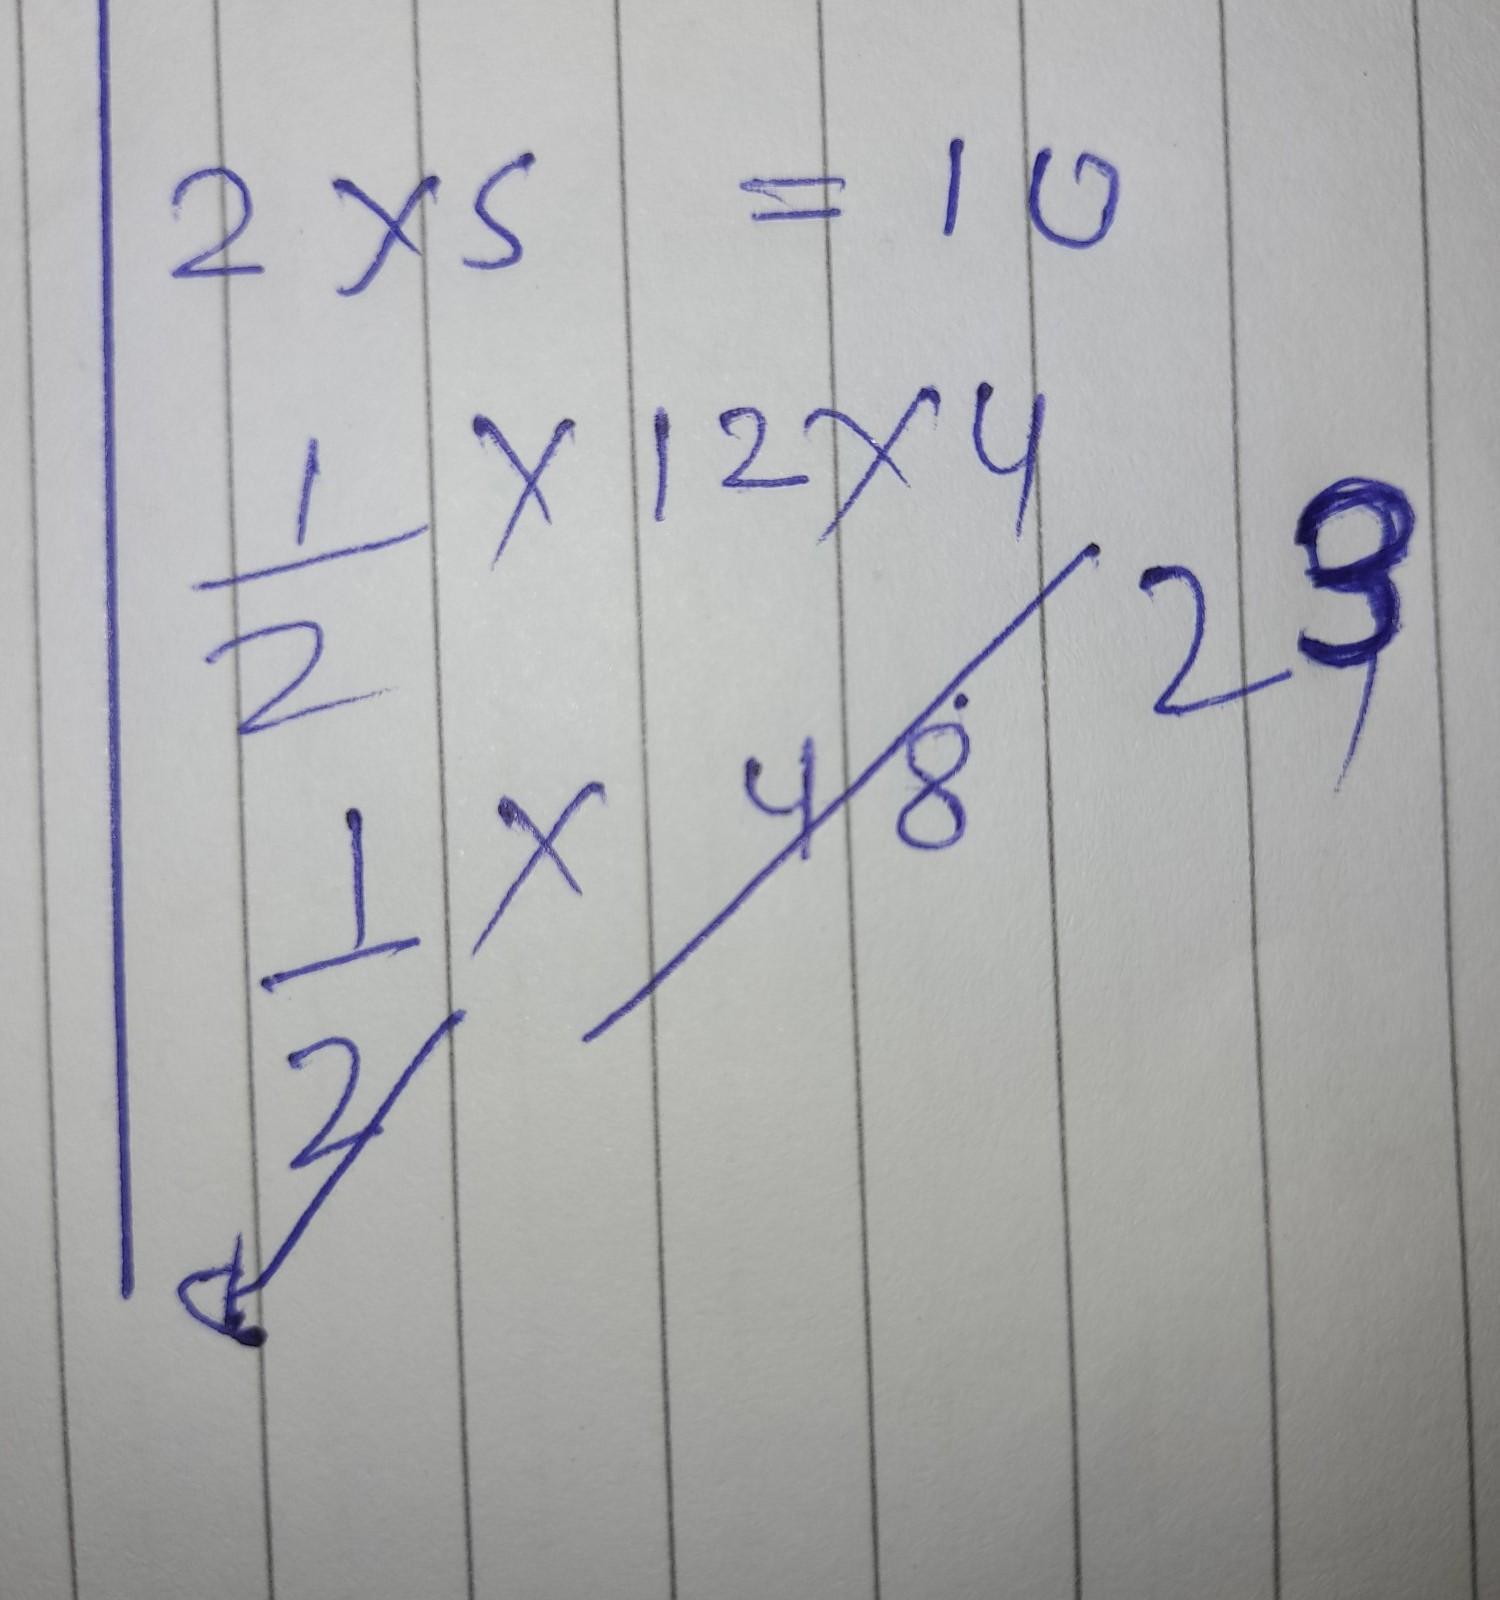 2 × 5 = 10
1/2 × 12 × 4
1/2 × 48 2